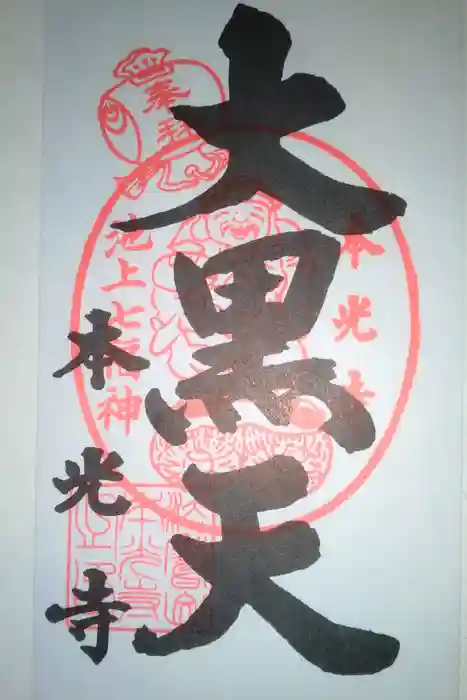 奉拝
本光寺
大黒天
池上七福神
本光寺